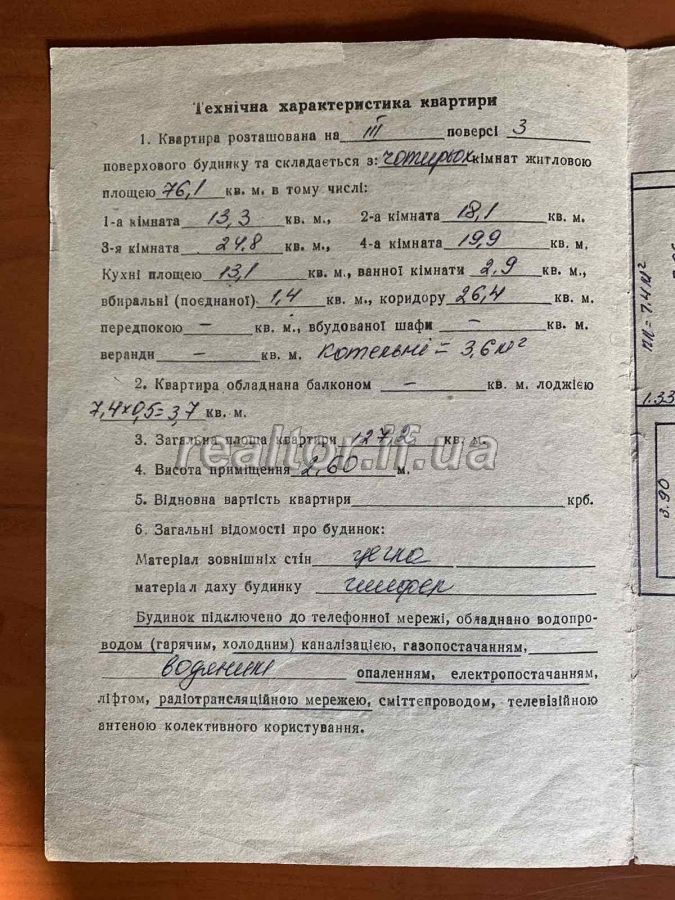 Технічна характеристика квартири
1. Квартира розташована на III поверсі 3
поверхового будинку та складається з: чотирьох кімнат житловою
площею 76,1 кв. м. в тому числі:
1-а кімната 13,3 кв. м., 2-а кімната 18,1 кв. м.
3-я кімната 24.8 кв. м., 4-а кімната 19,9 кв. м.
Кухні площею 13,1 кв. м., ванної кімнати 2,9 кв. м.,
вбиральні (поєднаної) 1,4 кв. м., коридору 26,4 кв. м.
передпокою – кв. м., вбудованої шафи – кв. м.
веранди – кв. м. котельні = 3,6 м²
2. Квартира обладнана балконом – кв. м. лоджією
7,4×0,5=3,7 кв. м.
3. Загальна площа квартири 127,2 кв. м.
4. Висота приміщення 2,60 м.
5. Відновна вартість квартири крб.
6. Загальні відомості про будинок:
Матеріал зовнішніх стін цегла
матеріал даху будинку шифер
Будинок підключено до телефонної мережі, обладнано водопро-
водом (гарячим, холодним) каналізацією, газопостачанням,
водяним опаленням, електропостачанням,
ліфтом, радіотрансляційною мережею, сміттєпроводом, телевізійною
антеною колективного користування.
realtor.if.ua
пл = 7.4 м²
1.33
3.90